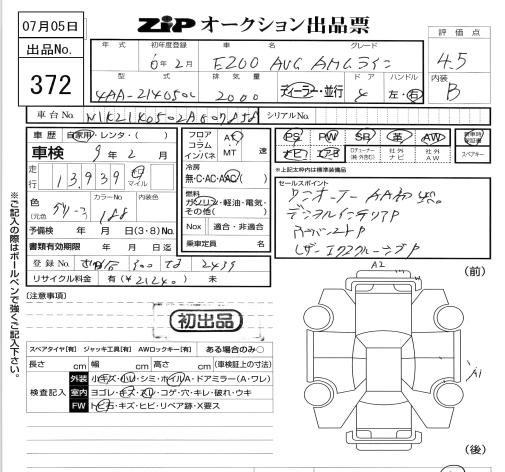 07月05日
ZIP オークション出品票
出品No.
372
評価点
4.5
内装
B
年式 初年度登録 車名 グレード
6年2月 E200 AVG AMGライン
型式 排気量 ドア ハンドル
2000 ディーラー・並行 4 左・右
車台No. シリアルNo.
車歴 自家用・レンタ・( )
車検 9年2月
走行 13,939 km マイル
色 (元色) カラーNo. 内装色
グリーン 188
予備検 年 月 日(3・8)No.
書類有効期限 年 月 日迄
登録No. 300 2439
リサイクル料金 有(¥21240) 未
フロア コラム インパネ AT MT 速
冷房
無・C・AC・AAC( )
燃料
ガソリン・軽油・電気・その他( )
Nox 適合・非適合
乗車定員 名
PS PW SR 革 AW
ナビ エアB
TVチューナー 社外ナビ 社外AW 新車時保証書 スペアキー
※上記太枠内は装備品
セールスポイント
ワンオーナー
デジタルインテリアP
レザーエクスクルーシブP
【注意事項】
初出品
スペアタイヤ[有] ジャッキ工具[有] AWロックキー[有] ある場合のみ○
長さ cm 幅 cm 高さ cm (車検証上の寸法)
検査記入
外装 小キズ・小凹・シミ・ホイルA・ドアミラー(A・ワレ)
室内 ヨゴレ・キズ・スレ・コゲ・穴・キレ・破れ・ウキ
FW トビ石・キズ・ヒビ・リペア跡・X要ス
※ご記入の際はボールペンで強くご記入下さい。
A2
(前)
A1
(後)